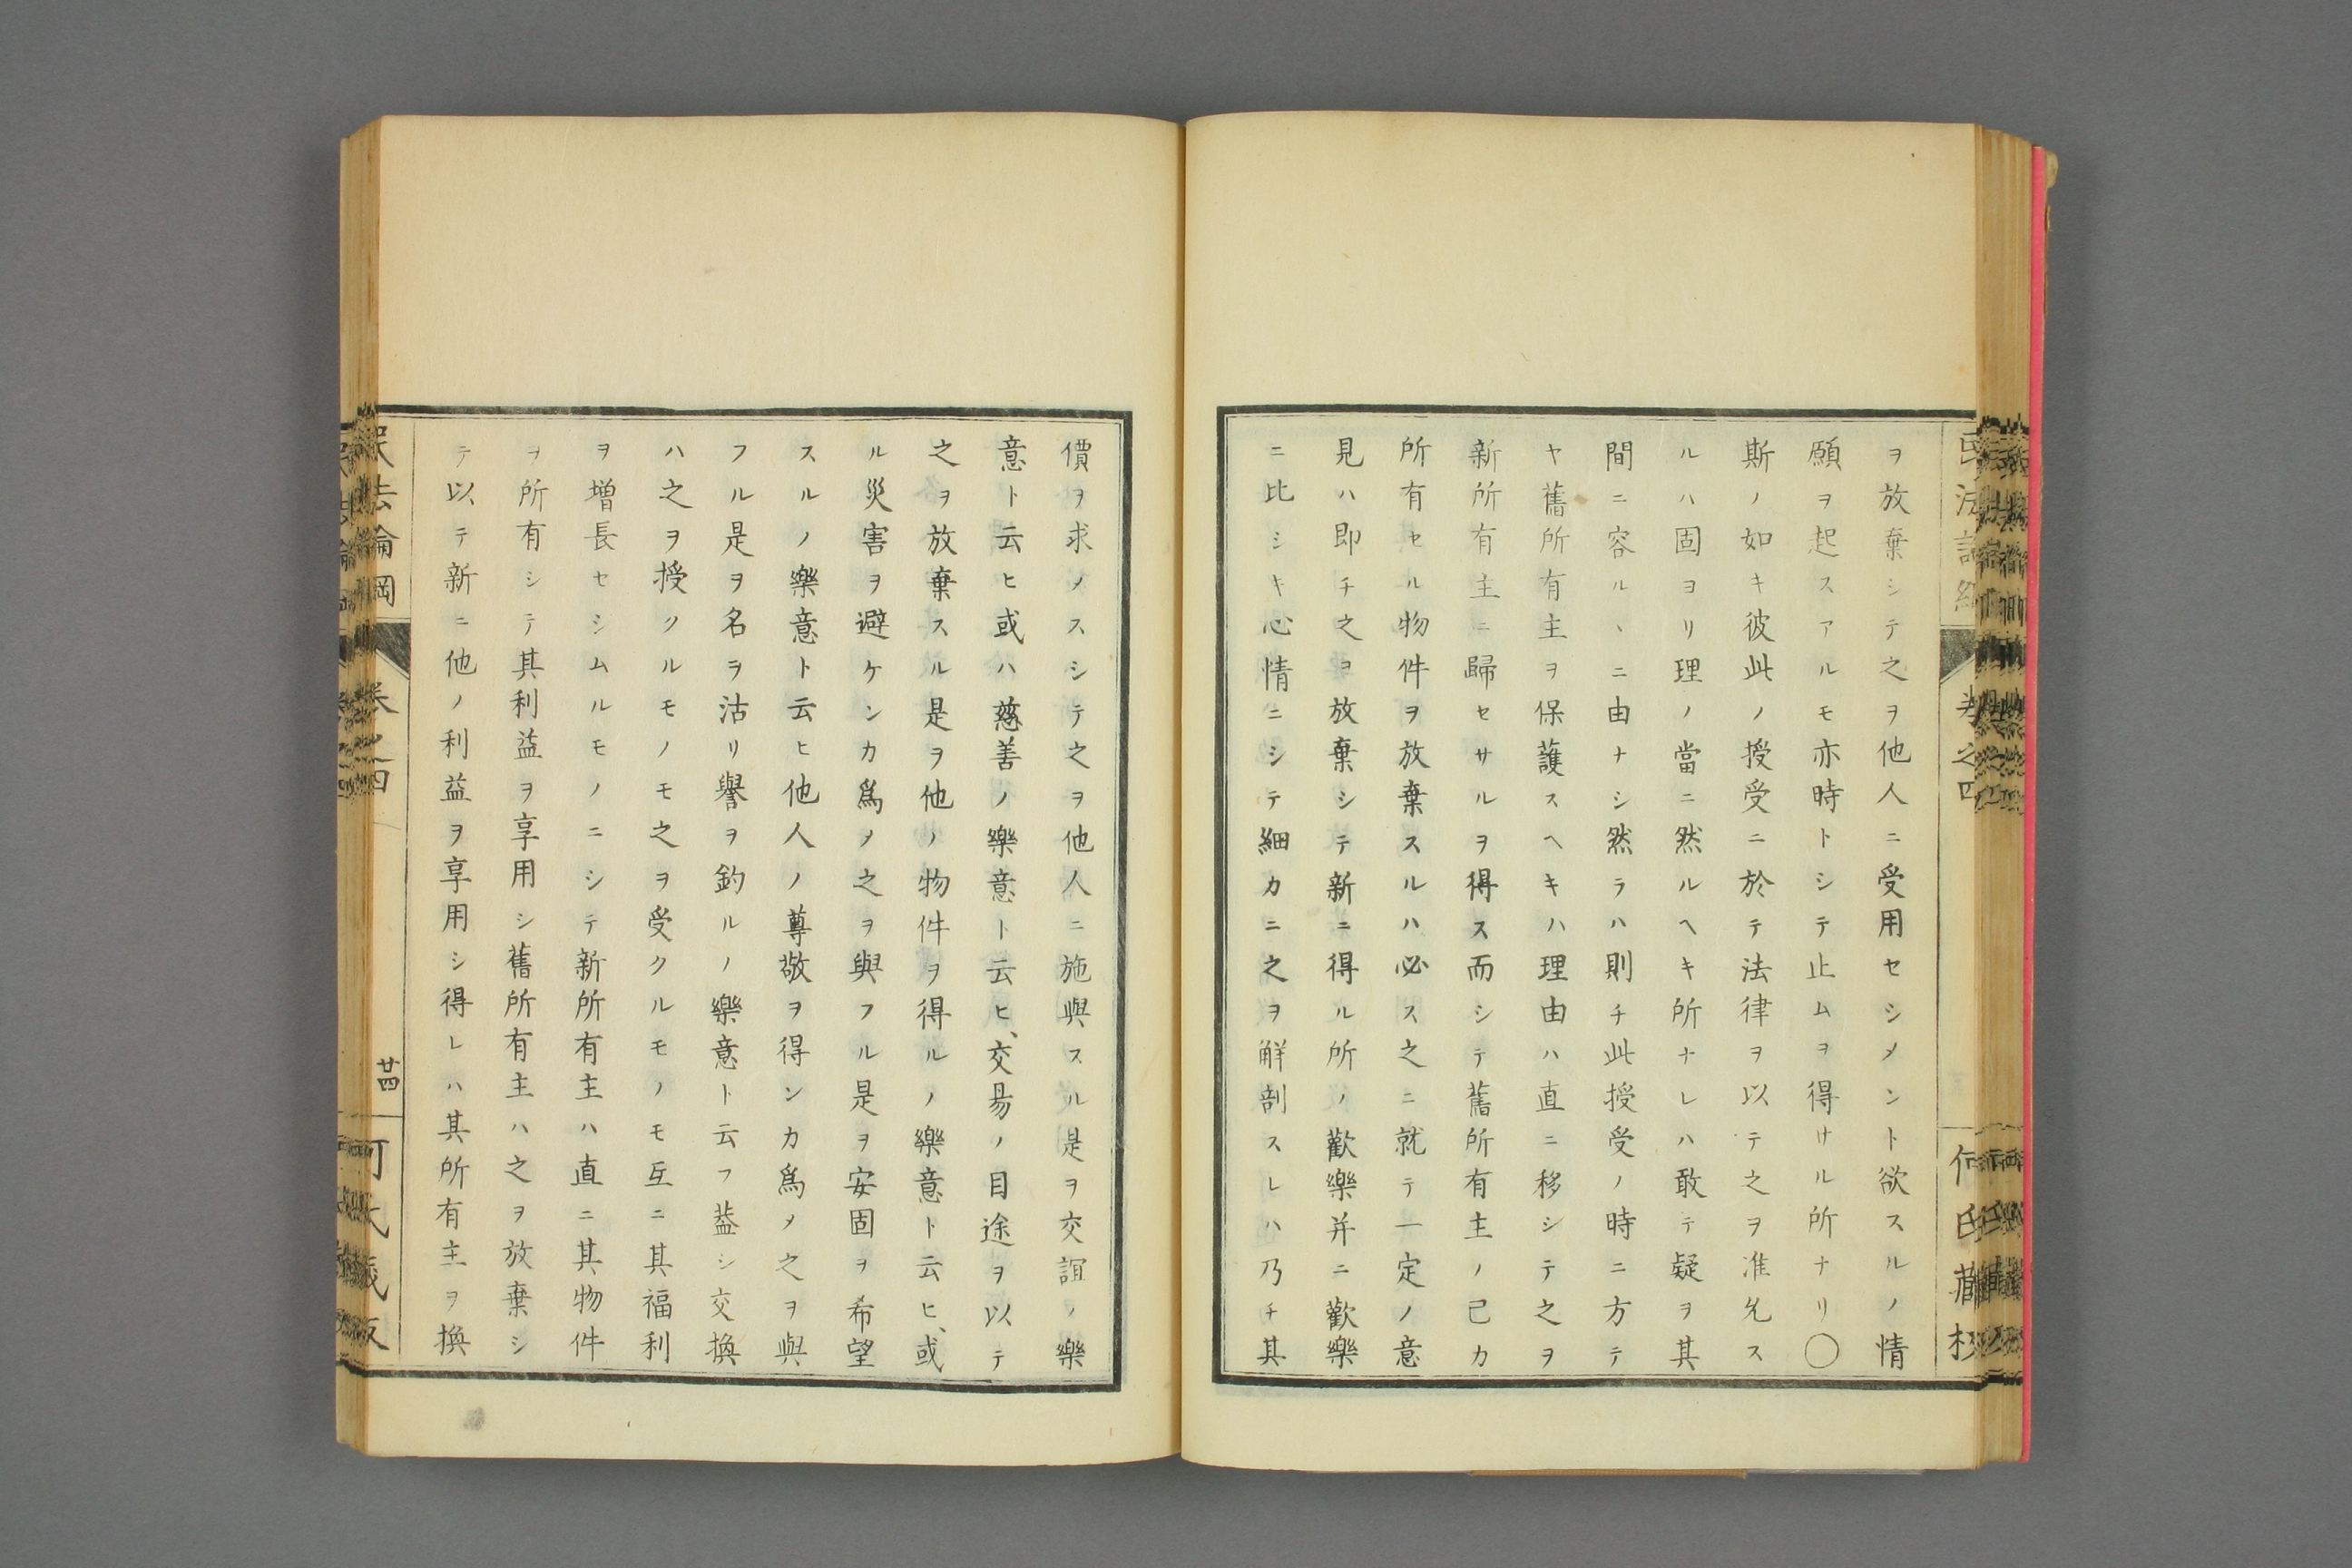 ヲ放棄シテ之ヲ他人ニ受用セシメント欲スルノ情
願ヲ起スアルモ亦時トシテ止ムヲ得サル所ナリ〇
斯ノ如キ彼此ノ授受ニ於テ法律ヲ以テ之ヲ准允ス
ルハ固ヨリ理ノ當ニ然ルヘキ所ナレハ敢テ疑ヲ其
間ニ容ルヽニ由ナシ然ラハ則チ此授受ノ時ニ方テ
ヤ舊所有主ヲ保護スヘキハ理由ハ直ニ移シテ之ヲ
新所有主ニ歸セサルヲ得ス而シテ舊所有主ノ己カ
所有セル物件ヲ放棄スルハ必ス之ニ就テ一定ノ意
見ハ即チ之ヲ放棄シテ新ニ得ル所ノ歡樂并ニ歡樂
ニ比シキ心情ニシテ細カニ之ヲ解剖スレハ乃チ其
價ヲ求メスシテ之ヲ他人ニ施與スル是ヲ交誼ノ樂
意ト云ヒ或ハ慈善ノ樂意ト云ヒ、交易ノ目途ヲ以テ
之ヲ放棄スル是ヲ他ノ物件ヲ得ルノ樂意ト云ヒ、或
ル災害ヲ避ケンカ爲メ之ヲ與フル是ヲ安固ヲ希望
スルノ樂意ト云ヒ他人ノ尊敬ヲ得ンカ爲メ之ヲ與
フル是ヲ名ヲ沽リ譽ヲ釣ルノ樂意ト云フ葢シ交換
ハ之ヲ授クルモノモ之ヲ受クルモノモ互ニ其福利
ヲ増長セシムルモノニシテ新所有主ハ直ニ其物件
ヲ所有シテ其利益ヲ享用シ舊所有主ハ之ヲ放棄シ
テ以テ新ニ他ノ利益ヲ享用シ得レハ其所有主ヲ換
民法論綱
卷之四
廿四
何氏藏版